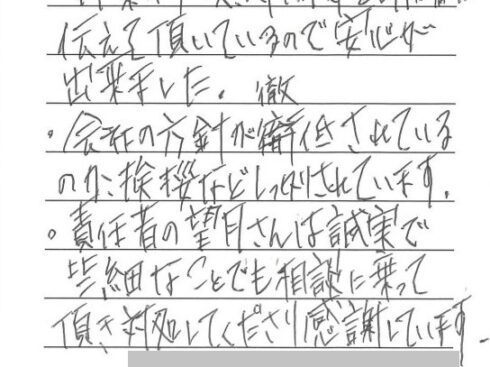 伝えて頂いているので安心が
出来ました。 徹
・会社の方針が徹底されている
のか、挨拶などしっかりされています。
・責任者の望月さんは誠実で
些細なことでも相談に乗って
頂き対処してくださり感謝しています。